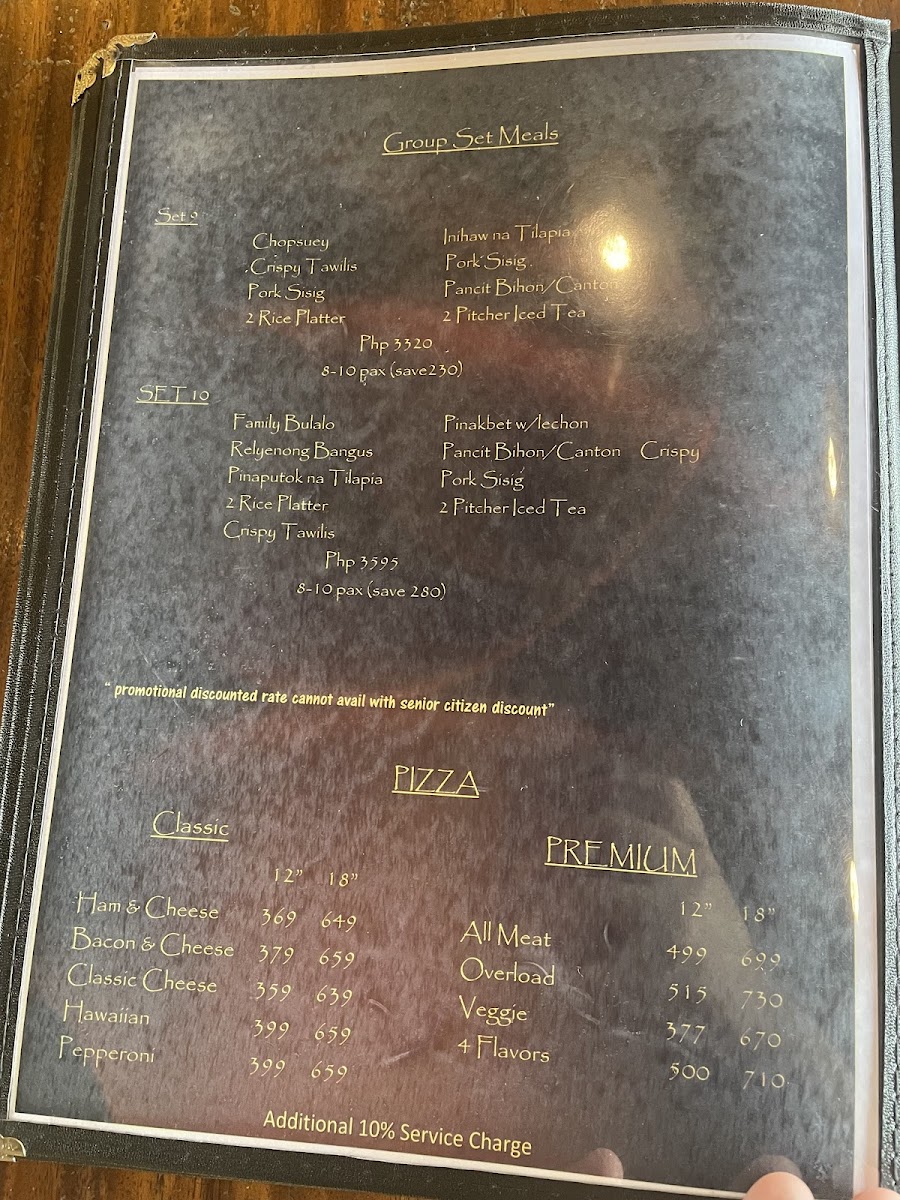 Group Set Meals
Set 9
Chopsuey Inihaw na Tilapia
Crispy Tawilis Pork Sisig
Pork Sisig Pancit Bihon/Canton
2 Rice Platter 2 Pitcher Iced Tea
Php 3320
8-10 pax (save230)
SET 10
Family Bulalo Pinakbet w/lechon
Relyenong Bangus Pancit Bihon/Canton Crispy
Pinaputok na Tilapia Pork Sisig
2 Rice Platter 2 Pitcher Iced Tea
Crispy Tawilis
Php 3595
8-10 pax (save 280)
" promotional discounted rate cannot avail with senior citizen discount"
PIZZA
Classic
12" 18"
Ham & Cheese 369 649
Bacon & Cheese 379 659
Classic Cheese 359 639
Hawaiian 399 659
Pepperoni 399 659
PREMIUM
12" 18"
All Meat 499 699
Overload 515 730
Veggie 377 670
4 Flavors 500 710
Additional 10% Service Charge